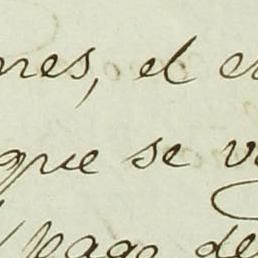 nes, el e
que se v
pago de